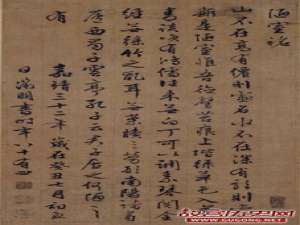 陋室銘
山不在高有僊則名水不在深有龍則靈
斯是陋室惟吾德馨苔痕上堦綠草色入簾
青談笑有鴻儒往來無白丁可以調素琴閱金
經無絲竹之亂耳無案牘之勞形南陽諸葛
廬西蜀子雲亭孔子云君子居之何陋之
有 嘉靖三十二年歲在癸丑七月初五
日徵明書時年八十有四